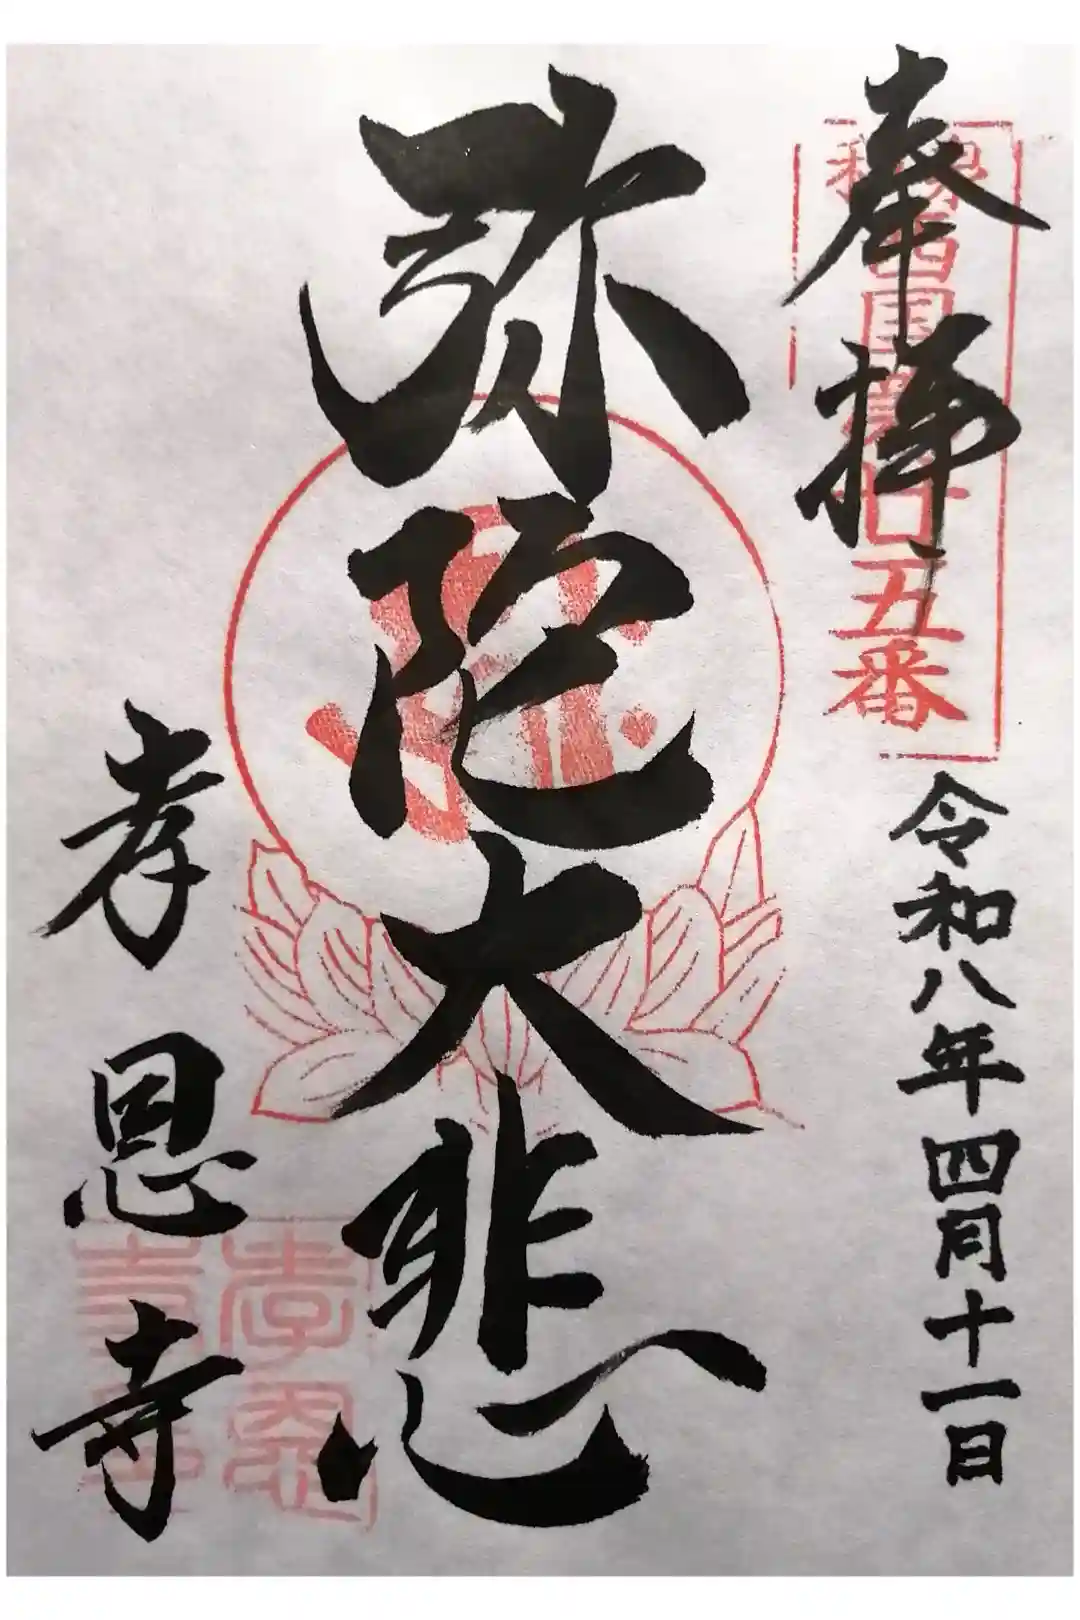 奉拝
西国
廿五番
令和八年四月十一日
弥陀大悲
孝恩寺
孝恩